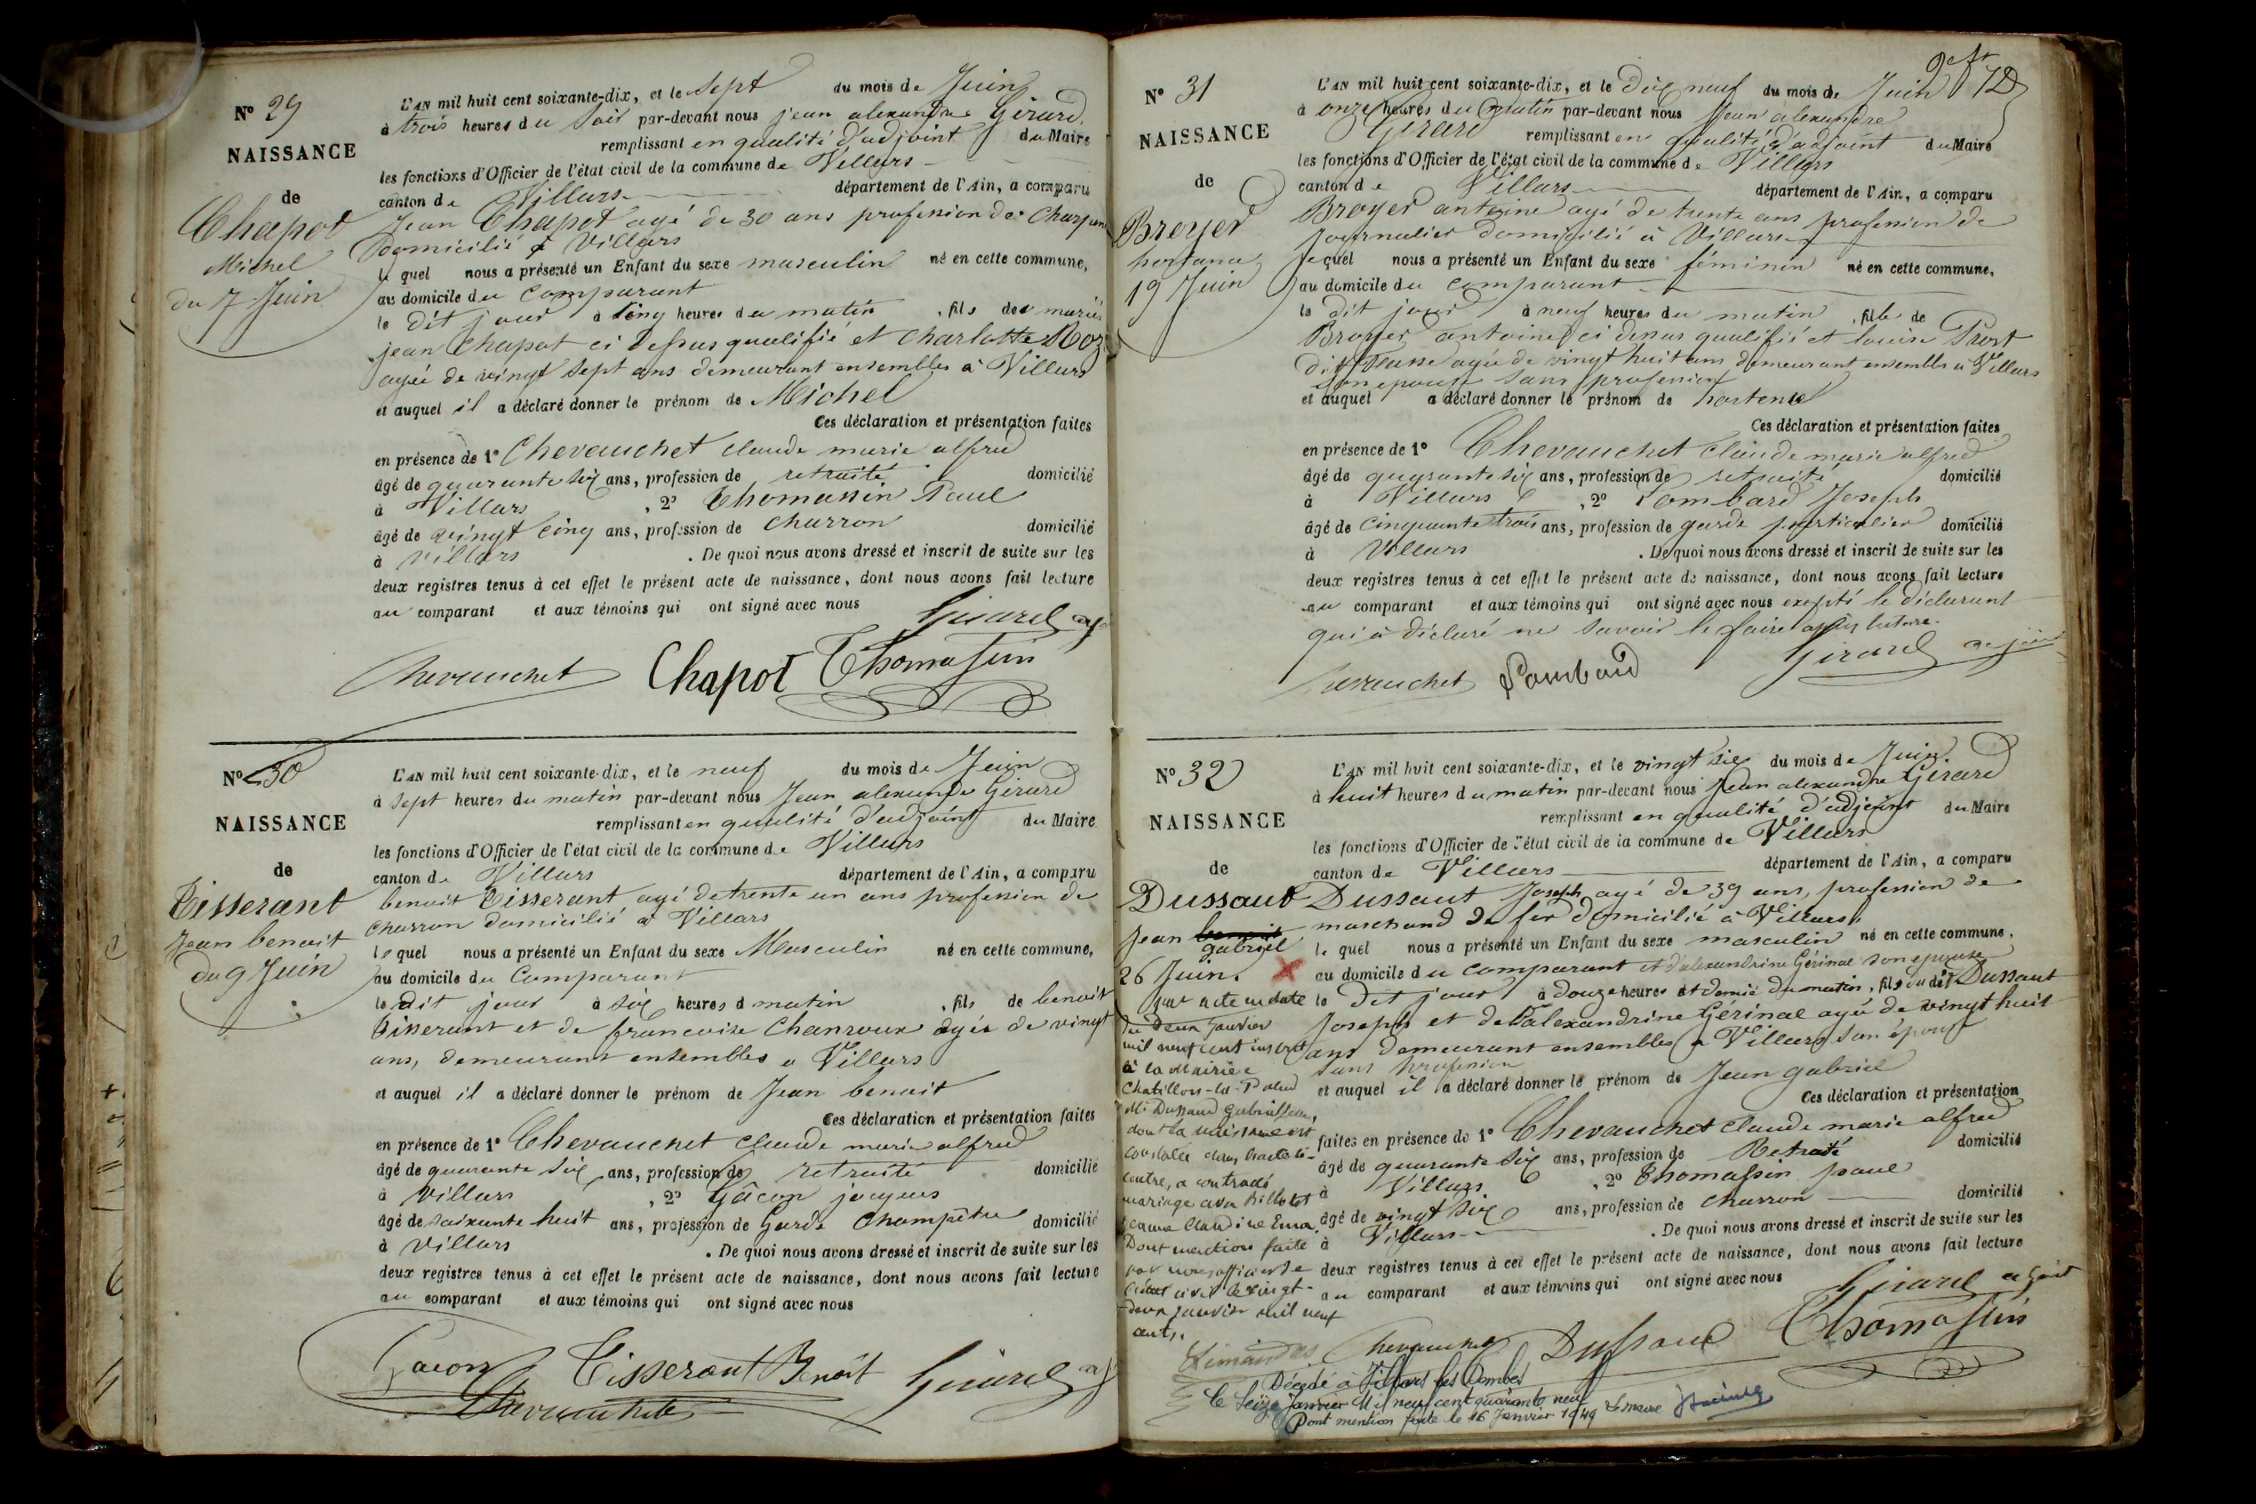 N° 29
NAISSANCE
de
Chapot
Michel
du 7 Juin
L'AN mil huit cent soixante-dix, et le sept du mois de Juin
à trois heures du soir par-devant nous jean alexandre Girard
remplissant en qualité d'adjoint du Maire
les fonctions d'Officier de l'état civil de la commune de Villars
canton de Villars département de l'Ain, a comparu
Jean Chapot agé de 30 ans profession de Charpen
domicilié à Villars
le quel nous a présenté un Enfant du sexe masculin né en cette commune,
au domicile du comparant
le dit jour à cinq heures du matin, fils des mariés
jean Chapot ci dessus qualifié et Charlotte Roz
agée de vingt sept ans demeurant ensembles à Villars
et auquel il a déclaré donner le prénom de Michel
Ces déclaration et présentation faites
en présence de 1° Chevauchet claude marie alfred
âgé de quarante six ans, profession de retraité domicilié
à Villars, 2° Thomassin Paul
âgé de vingt cinq ans, profession de charron domicilié
à villars. De quoi nous avons dressé et inscrit de suite sur les
deux registres tenus à cet effet le présent acte de naissance, dont nous avons fait lecture
au comparant et aux témoins qui ont signé avec nous
Girard adj
Chevauchet Chapot Thomassin
N° 30
NAISSANCE
de
Tisserant
Jean benoit
du 9 Juin
L'AN mil huit cent soixante-dix, et le neuf du mois de Juin
à sept heures du matin par-devant nous Jean alexandre Girard
remplissant en qualité d'adjoint du Maire
les fonctions d'Officier de l'état civil de la commune de Villars
canton de Villars département de l'Ain, a comparu
benoit Tisserant agé de trente un ans profession de
charron domicilié à Villars
le quel nous a présenté un Enfant du sexe Masculin né en cette commune,
au domicile du Comparant
le dit jour à six heures d matin, fils de benoit
Tisserant et de francoise Chanroux agée de vingt
ans, demeurant ensembles a Villars
et auquel il a déclaré donner le prénom de Jean benoit
Ces déclaration et présentation faites
en présence de 1° Chevauchet claude marie alfred
âgé de quarante six ans, profession de retraité domicilié
à villars, 2° Gâcon jacques
âgé de soixante huit ans, profession de Garde Champêtre domicilié
à villars. De quoi nous avons dressé et inscrit de suite sur les
deux registres tenus à cet effet le présent acte de naissance, dont nous avons fait lecture
au comparant et aux témoins qui ont signé avec nous
Gacon Tisserant Benoit Girard adj
Chevauchet
N° 31
NAISSANCE
de
Broyer
hortance
19 Juin
12
L'AN mil huit cent soixante-dix, et le dix neuf du mois de Juin
à onze heures du matin par-devant nous Jean alexandre
Girard remplissant en qualité d'adjoint du Maire
les fonctions d'Officier de l'état civil de la commune de Villars
canton de Villars département de l'Ain, a comparu
Broyer antoine agé de trente ans profession de
journalier domicilié à Villars
lequel nous a présenté un Enfant du sexe féminin né en cette commune,
au domicile du comparant
le dit jour à neuf heures du matin, fille de
Broyer antoine ci dessus qualifié et louise Prost
dit agée de vingt huit ans demeurant ensembles a Villars
son epouse sans profession
et auquel a déclaré donner le prénom de hortense
Ces déclaration et présentation faites
en présence de 1° Chevauchet Claude marie alfred
âgé de quarante six ans, profession de retraité domicilié
à Villars, 2° Lombard Joseph
âgé de cinquante trois ans, profession de garde particulier domicilié
à Villars. De quoi nous avons dressé et inscrit de suite sur les
deux registres tenus à cet effet le présent acte de naissance, dont nous avons fait lecture
au comparant et aux témoins qui ont signé avec nous exepté le déclarant
qui à déclaré ne savoir le faire après lecture.
Girard adjoint
Chevauchet Lombard
N° 32
NAISSANCE
de
Dussaut
Jean benoit
gabriel
26 Juin.
par acte en date
du deux Janvier
mil neuf cent inscrit
à la Mairie
Chatillon-la-Palud
Mr Dussaud Gabriel Jean,
dont la naissance est
constatée dans l'acte ci-
contre, a contracté
mariage avec Billotet
Jeanne Claudine Ema
Dont mention faite
par nous officier de
l'état civil le vingt-
deux janvier mil neuf
cent.
L'AN mil huit cent soixante-dix, et le vingt six du mois de Juin
à huit heures du matin par-devant nous Jean alexandre Girard
remplissant en qualité d'adjoint du Maire
les fonctions d'Officier de l'état civil de la commune de Villars
canton de Villars département de l'Ain, a comparu
Dussaut Joseph agé de 39 ans, profession de
marchand de fer domicilié à Villars
le quel nous a présenté un Enfant du sexe masculin né en cette commune,
au domicile du comparant et d'alexandrine Gérinal son epouse
le dit jour à douze heures et demie du matin, fils du dit Dussaut
Joseph et de alexandrine Gérinal agé de vingt huit
ans demeurant ensembles a Villars son épouse
sans profession
et auquel il a déclaré donner le prénom de Jean gabriel
Ces déclaration et présentation
faites en présence de 1° Chevauchet claude marie alfred
âgé de quarante six ans, profession de Retraité domicilié
à Villars, 2° Thomassin paul
âgé de vingt six ans, profession de charron domicilié
à Villars. De quoi nous avons dressé et inscrit de suite sur les
deux registres tenus à cet effet le présent acte de naissance, dont nous avons fait lecture
au comparant et aux témoins qui ont signé avec nous
Girard adjoint
Chevauchet Dussaud Thomassin
Décédé à Villars les Dombes
le Seize Janvier Mil neuf cent quarante neuf
Dont mention faite le 16 Janvier 1949 Le maire